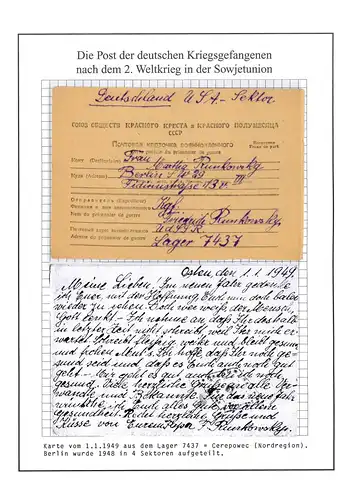 Die Post der deutschen Kriegsgefangenen
nach dem 2. Weltkrieg in der Sowjetunion
Deutschland USA-Sektor
СОЮЗ ОБЩЕСТВ КРАСНОГО КРЕСТА и КРАСНОГО ПОЛУМЕСЯЦА
СССР
Почтовая карточка военнопленного
Carte postale du prisonnier de guerre
Кому (Destinataire) Frau
Runkowsky
Куда (Adresse) Berlin S.W. 29
Отправитель (Expéditeur)
Фамилия и имя военнопленного
Nom du prisonnier de guerre
Runkowsky
Почтовый адрес военнопленного
Adresse du prisonnier de guerre
Lager 7437
Osten, den 1.1.1949
Meine Lieben! Im neuen Jahr gedenke
ich Euer mit der Hoffnung Euch nun doch bald
wieder zu sehen. Doch wer weiss der Mensch,
Gott lenkt – Ich nehme an daß Ihr deshalb
in letzter Zeit nicht schreibt, weil Ihr mich er-
wartet. Schreibt fleissig weiter und bleibt gesund
und frohen Mut's. Ich hoffe, daß Ihr noch ge-
sund seid und daß es Euch auch noch gut
geht – Mir geht es gut auch bin ich noch
gesund. Viele herzliche Grüsse an alle Ver-
wandte und Bekannte. Für das neue Jahr
wünsche ich Euch alles Gute vor allem
Gesundheit. Recht herzliche Grüsse und
Küsse von Eurem F. Runkowsky
Karte vom 1.1.1949 aus dem Lager 7437 = Cerepowec (Nordregion).
Berlin wurde 1948 in 4 Sektoren aufgeteilt.